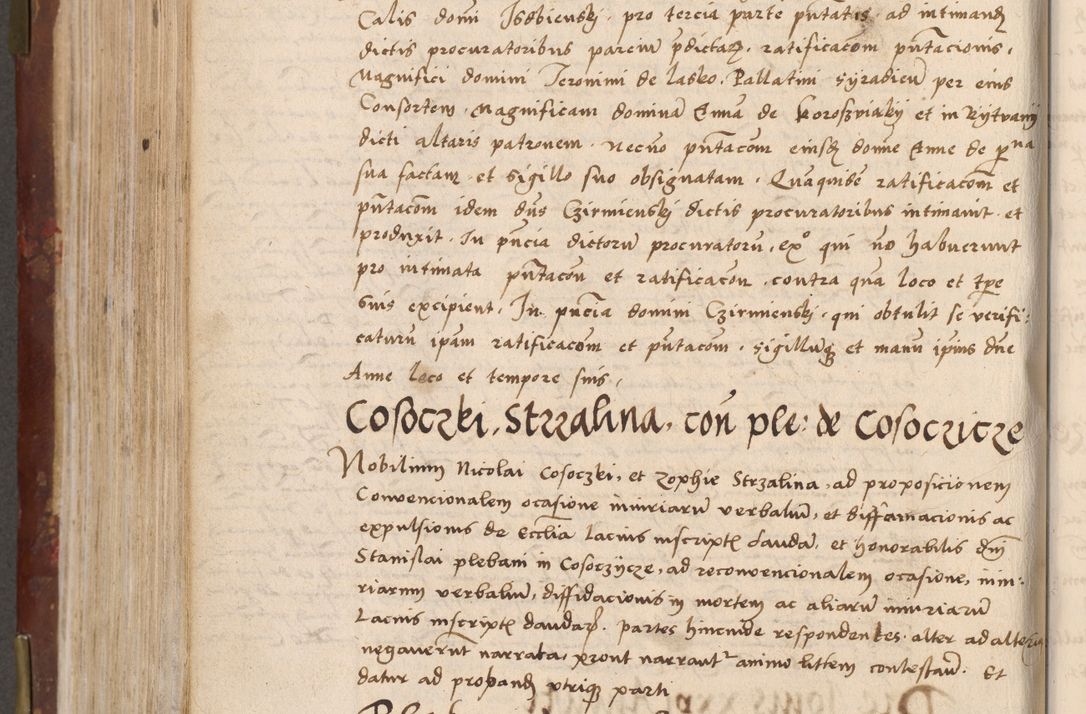 Calis domi Isdbiensky pro tercia parte pntatis ad intimand
dictis procuratoribus parcium pdictar, ratificacom pntacionis,
Magnifici domini Jeronimi de lasko, Pallatini syradien per eius
Consortem Magnificam dominã Annã de Koroszwiaky et in Rytwany
dicti altaris patronem, necno pntacom eiusd domine Anne de
sua factam et sigillo suo obsignatam. Quaquide ratificacom et
pntacom idem dns Czirmienski dictis procuratoribus intimavit et
produxit. In pncia dictoru procuratoru, exº qui no habuerunt
pro intimata pntacom et ratificacom, contra qua loco et tpe
suis excipient. In pncia domini Czirmienski, qui obtulit se verifi:
caturu ipam ratificacom et pntacom, sigillumq et manu ipius dne
Anne loco et tempore suis,
Cosoczki, Strzalina, con ple: de Cosoczicze
Nobilium Nicolai Cosoczki, et Zophie Strzalina, ad proposicionem
Convencionalem ocasione iniuriaru verbaliu, et diffamacionis ac
expulsionis de Ecclia lacius inscript dauda, et honorabilis dni
Stanislai plebani in Cosoczycze, ad reconvencionalem ocasione, iniu:
riarum verbaliu, diffidacionis in mortem ac aliaru iniuriaru
Lacius inscript daudar. partes hincinde respondentes, alter ad alterius
negaverut narrata, pront narrantr animo littem contestau. Et
datur ad proband utriq parti